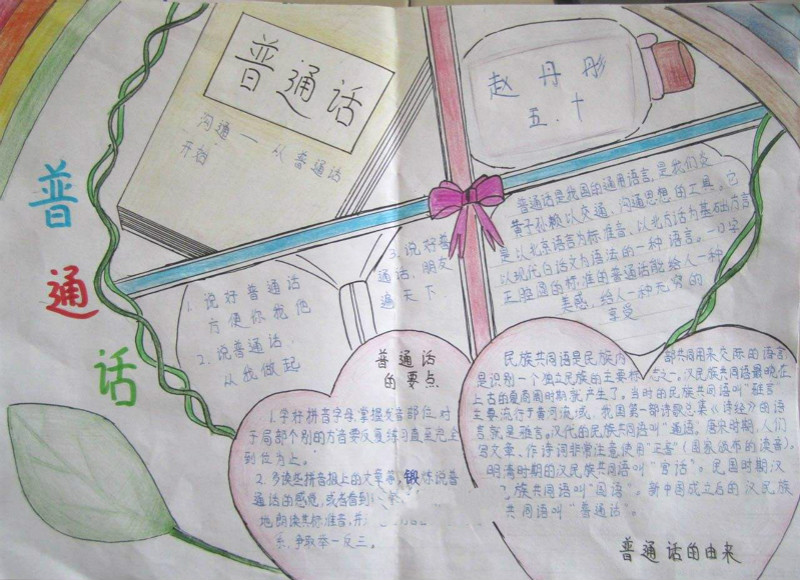 普通话
沟通—从普通话
开始
赵丹彤
五.十
普
通
话
普通话是我国的通用语言,是我们炎
黄子孙赖以交通、沟通思想的工具。它
是以北京语言为标准音、以北方话为基础方言
以现代白话文为语法的一种语言。一口字
正腔圆的标准的普通话能给人一种
美感,给人一种无穷的
享受
1.说好普通话
方便你我他
2.说普通话.
从我做起
3.说好普
通话,朋友
遍天下
普通话
的要点
1.学好拼音字母,掌握发音部位.对
于局部个别的方音要反复练习直至完全
到位为上。
2.多读些拼音报上的文章等,锻炼说普
通话的感觉,或者看到
地朗读其标准音,并
系,争取举一反三。
民族共同语是民族内 部共同用来交际的语言
是识别一个独立民族的主要标志之一。汉民族共同语最晚在
上古的夏商周时期就产生了。当时的民族共同语叫“雅言”
主要流行于黄河流域,我国第一部诗歌总集《诗经》的语
言就是雅言。汉代的民族共同语叫“通语”,唐宋时期,人们
写文章、作诗词非常注意使用“正音”(国家颁布的读音),
明清时期的汉民族共同语叫“官话”。民国时期汉
族共同语叫“国语”。新中国成立后的汉民族
共同语叫“普通话”。
普通话的由来